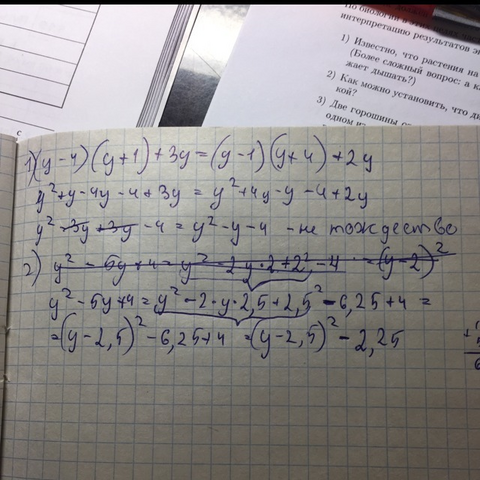 По биологии
интерпретацию результатов э
1) Известно, что растения на
(Более сложный вопрос: а ка
жает дышать?)
2) Как можно установить, что ды
кой?
3) Две горошины со
одном из
с
1) (y-4)(y+1)+3y=(y-1)(y+4)+2y
y²+y-4y-4+3y=y²+4y-y-4+2y
y²-3y+3y-4=y²-y-4 -не тождество
2) y²-5y+4=y²-2y·2+2²-4=(y-2)²
y²-5y+4=y²-2·y·2,5+2,5²-6,25+4=
=(y-2,5)²-6,25+4=(y-2,5)²-2,25